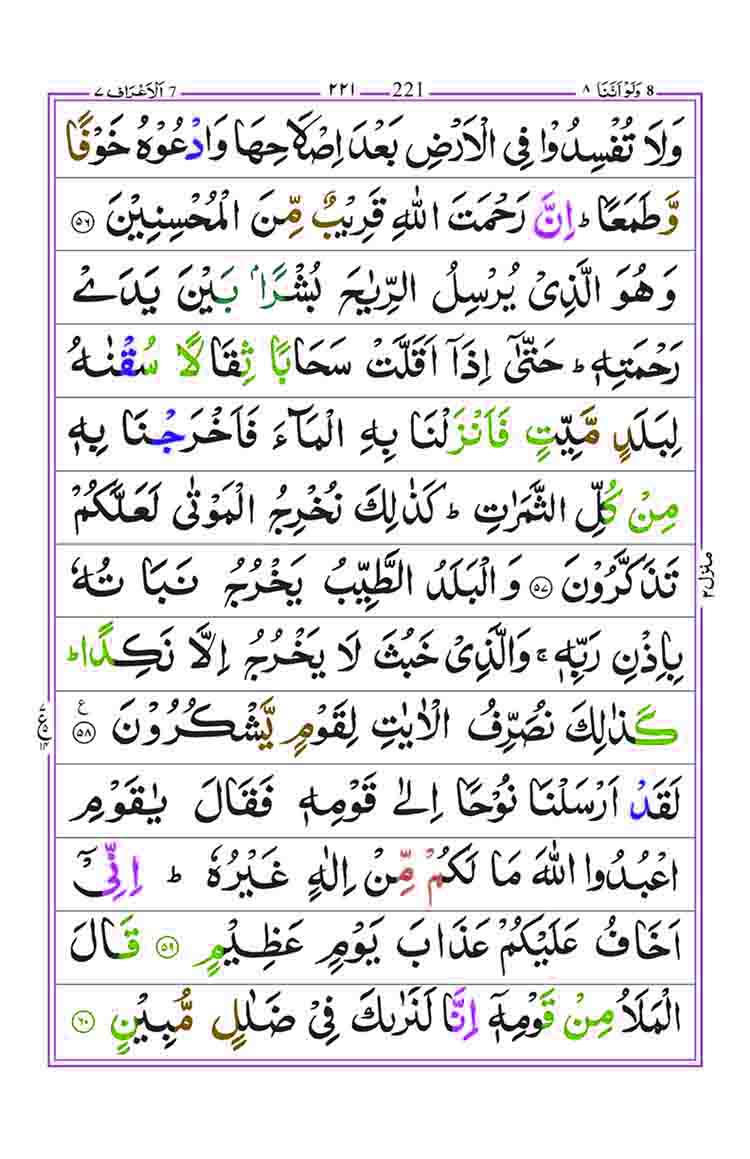 8 وَلَوْ اَنَّنَا ٨ 221 ٢٢١ 7 اَلْاَعْرَاف ٧
وَلَا تُفْسِدُوْا فِى الْاَرْضِ بَعْدَ اِصْلَاحِهَا وَادْعُوْهُ خَوْفًا
وَّطَمَعًا ؕ اِنَّ رَحْمَتَ اللّٰهِ قَرِيْبٌ مِّنَ الْمُحْسِنِيْنَ ۝٥٦
وَهُوَ الَّذِىْ يُرْسِلُ الرِّيٰحَ بُشْرًاۢ بَيْنَ يَدَىْ
رَحْمَتِهٖ ؕ حَتّٰۤى اِذَاۤ اَقَلَّتْ سَحَابًا ثِقَالًا سُقْنٰهُ
لِبَلَدٍ مَّيِّتٍ فَاَنْزَلْنَا بِهِ الْمَآءَ فَاَخْرَجْنَا بِهٖ
مِنْ كُلِّ الثَّمَرٰتِ ؕ كَذٰلِكَ نُخْرِجُ الْمَوْتٰى لَعَلَّكُمْ
تَذَكَّرُوْنَ ۝٥٧ وَالْبَلَدُ الطَّيِّبُ يَخْرُجُ نَبَاتُهٗ
بِاِذْنِ رَبِّهٖ ۚ وَالَّذِىْ خَبُثَ لَا يَخْرُجُ اِلَّا نَكِدًا ؕ
كَذٰلِكَ نُصَرِّفُ الْاٰيٰتِ لِقَوْمٍ يَّشْكُرُوْنَ ۝٥٨ ع
لَقَدْ اَرْسَلْنَا نُوْحًا اِلٰى قَوْمِهٖ فَقَالَ يٰقَوْمِ
اعْبُدُوا اللّٰهَ مَا لَكُمْ مِّنْ اِلٰهٍ غَيْرُهٗ ؕ اِنِّىْۤ
اَخَافُ عَلَيْكُمْ عَذَابَ يَوْمٍ عَظِيْمٍ ۝٥٩ قَالَ
الْمَلَاُ مِنْ قَوْمِهٖۤ اِنَّا لَنَرٰىكَ فِىْ ضَلٰلٍ مُّبِيْنٍ ۝٦٠
منزل ٢